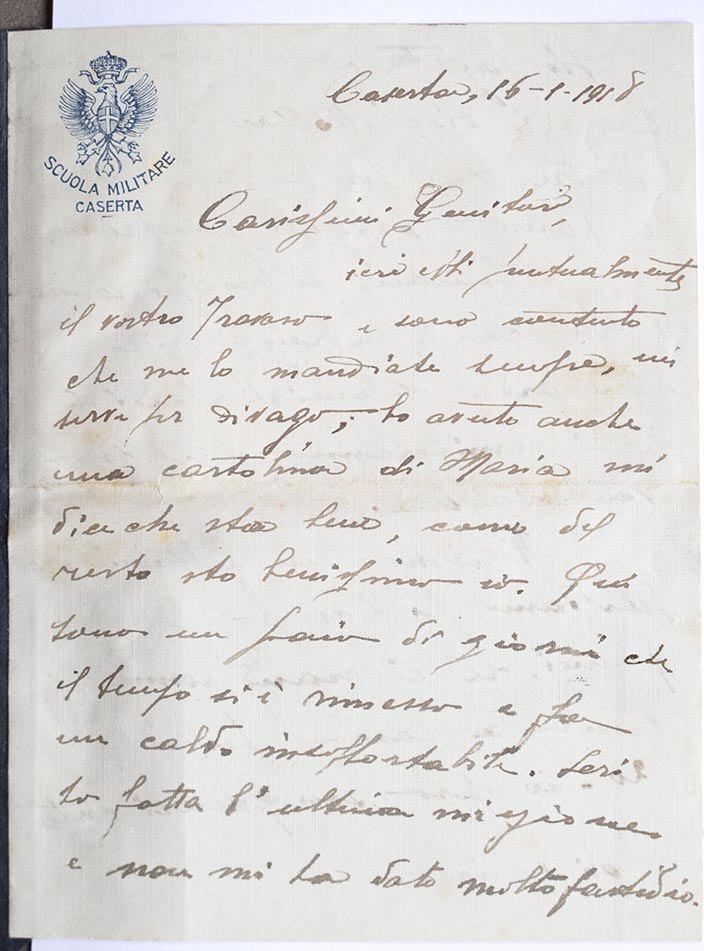 SCUOLA MILITARE
CASERTA
Caserta, 16-1-1918
Carissimi Genitori,
ieri ebbi puntualmente
il vostro Travaso e sono contento
che me lo mandiate sempre, mi
serve per divago; ho avuto anche
una cartolina di Maria mi
dice che sta bene, come del
resto sto benissimo io. Qui
sono un paio di giorni che
il tempo si è rimesso e fa
un caldo insopportabile. Ieri
ho fatta l'ultima iniezione
e non mi ha dato molto fastidio.